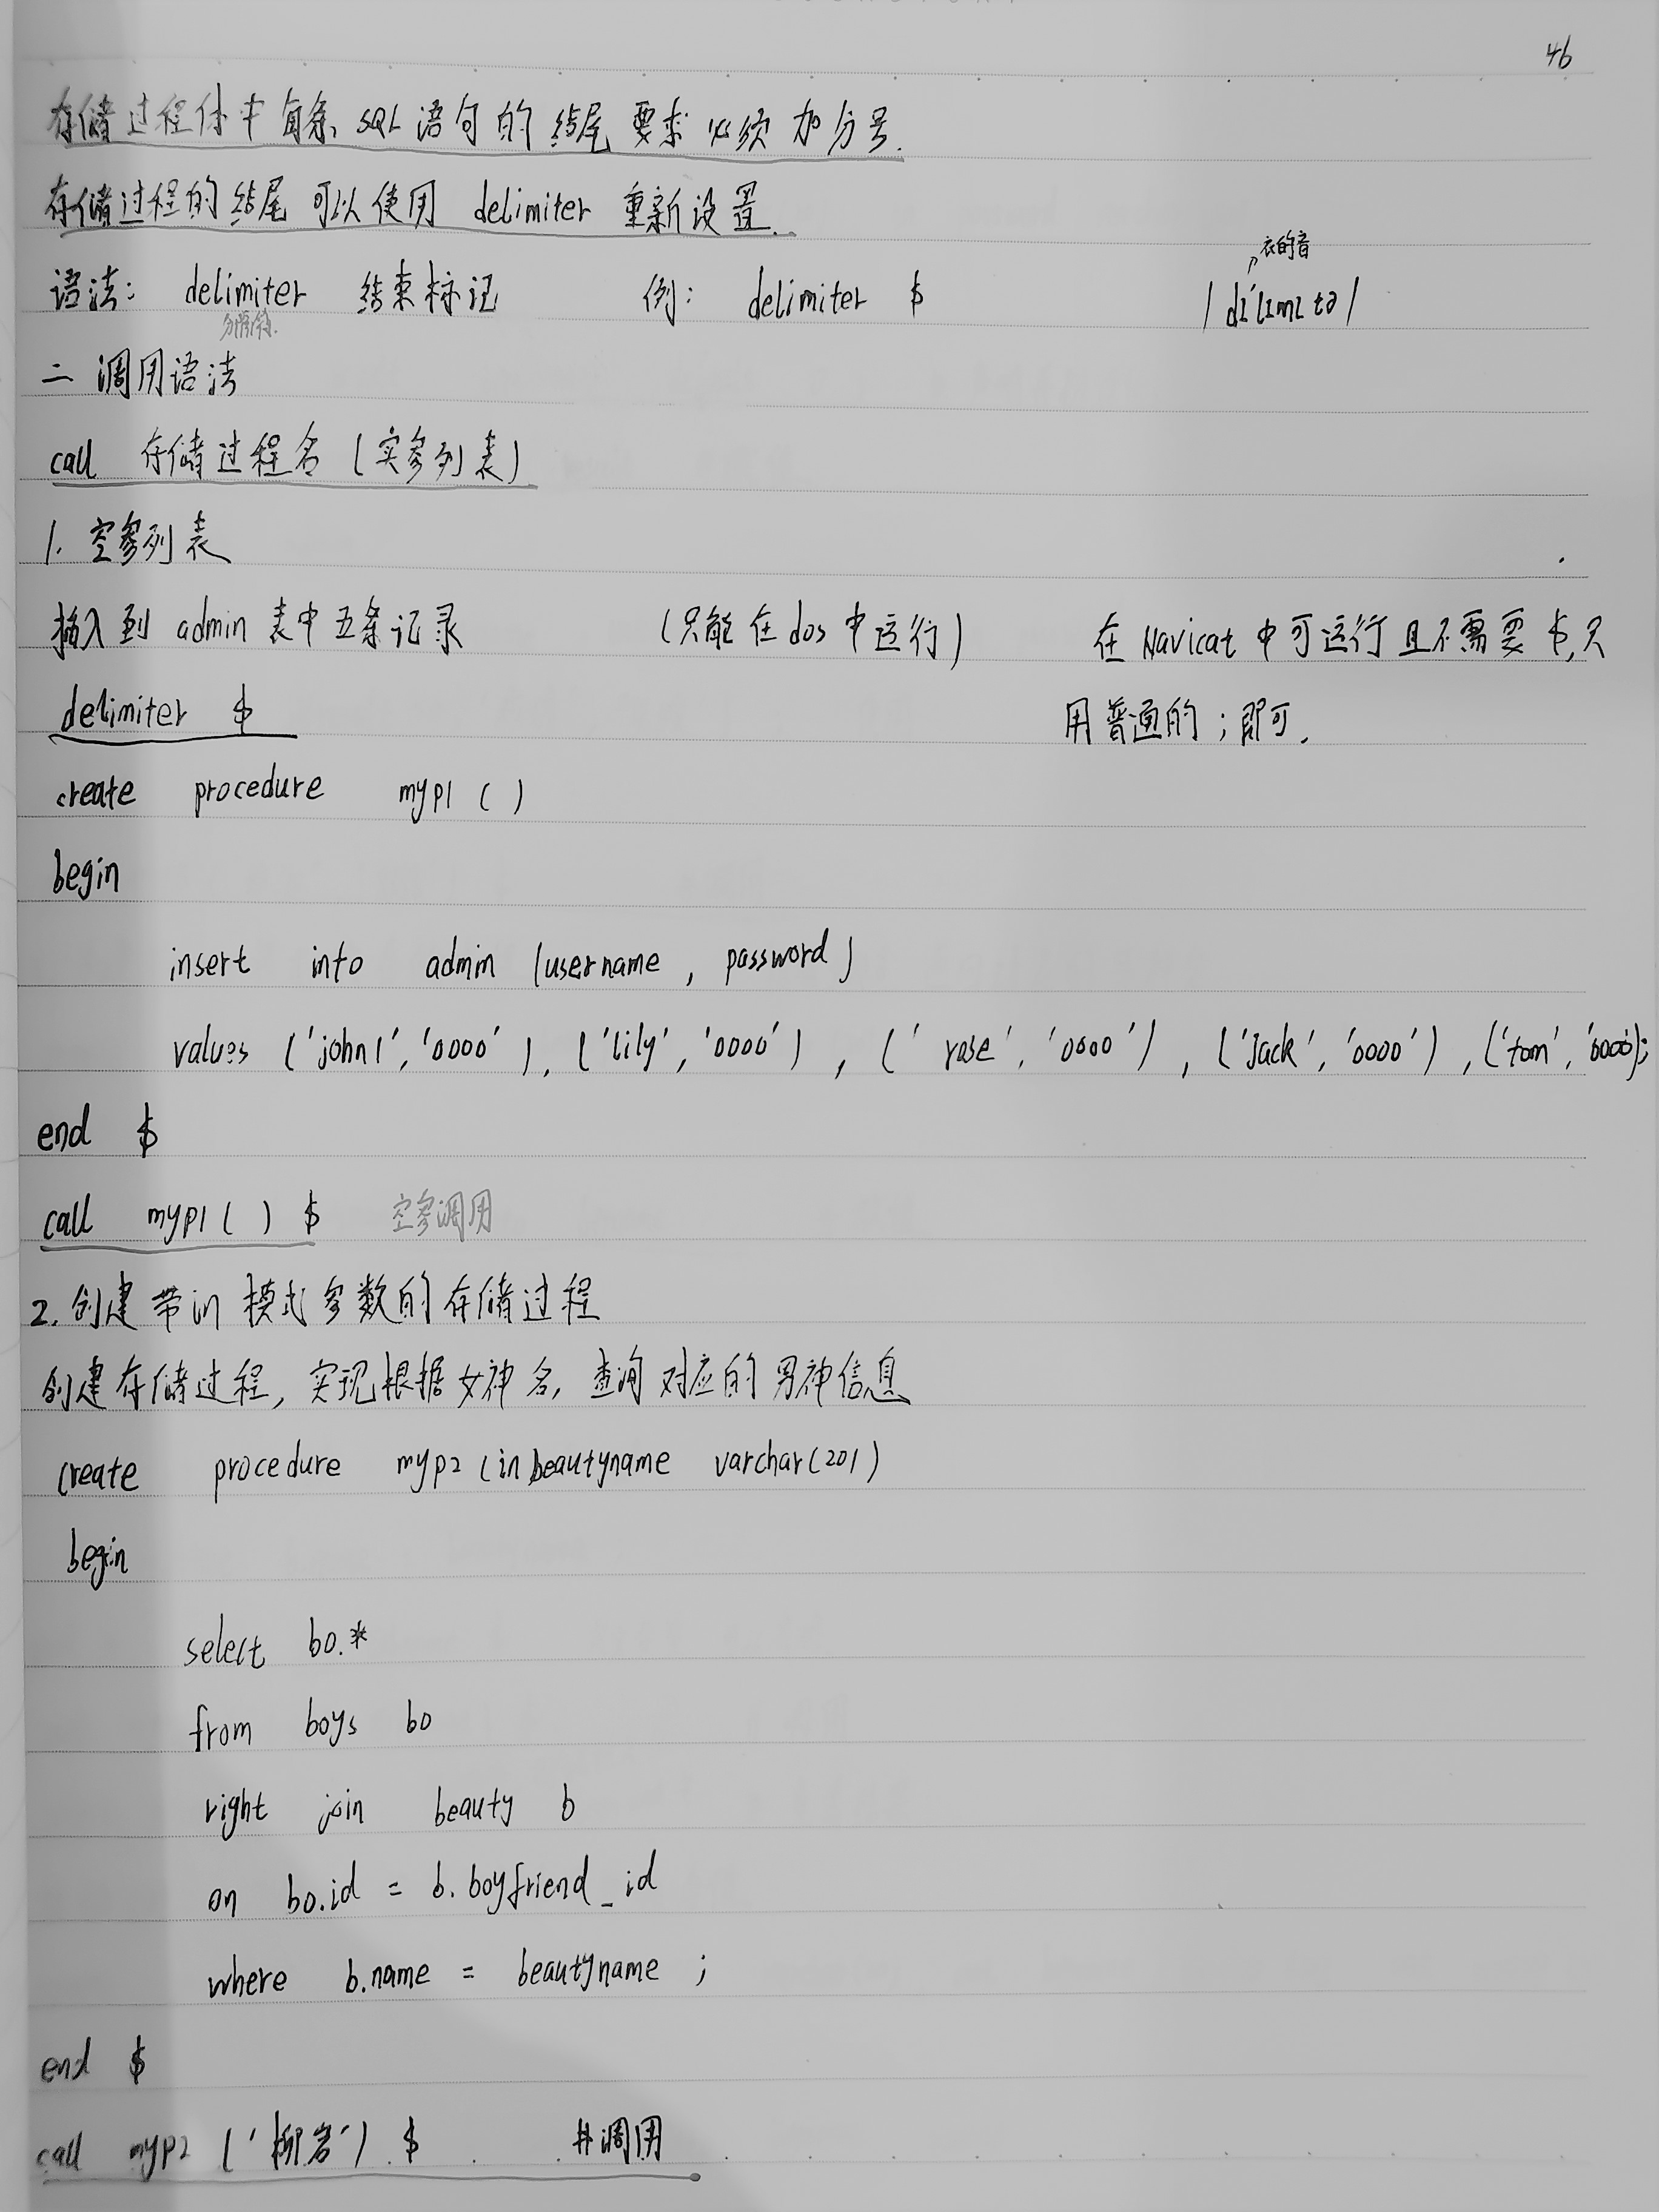 46
存储过程体中每条SQL语句的结尾要求必须加分号.
存储过程的结尾可以使用 delimiter 重新设置.
衣的音
语法: delimiter 结束标记 例: delimiter $ /dɪ'lɪmɪtə/
分隔符.
二 调用语法
call 存储过程名 (实参列表)
1. 空参列表
插入到 admin 表中五条记录 (只能在dos中运行) 在 Navicat 中可运行且不需要$,只
delimiter $ 用普通的;即可.
create procedure myp1 ( )
begin
insert into admin (username, password)
values ('john1','0000'), ('lily','0000'), ('rose','0000'), ('Jack','0000'), ('tom','0000);
end $
call myp1 ( ) $ 空参调用
2. 创建带in模式参数的存储过程
创建存储过程, 实现根据女神名, 查询对应的男神信息
create procedure myp2 (in beautyname varchar(20))
begin
select bo.*
from boys bo
right join beauty b
on bo.id = b.boyfriend_id
where b.name = beautyname ;
end $
call myp2 ('柳岩') $ #调用